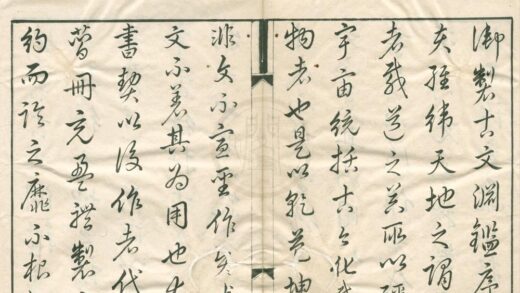 御製古文淵鑑序
夫經緯天地之謂
者載道之器所以彌
宇宙統括古今化裁
物者也是以乾苞坤
非文不宣聖作賢
文不著其為用也大
書契以後作者代
簡冊充盈體製
約而論之靡不根